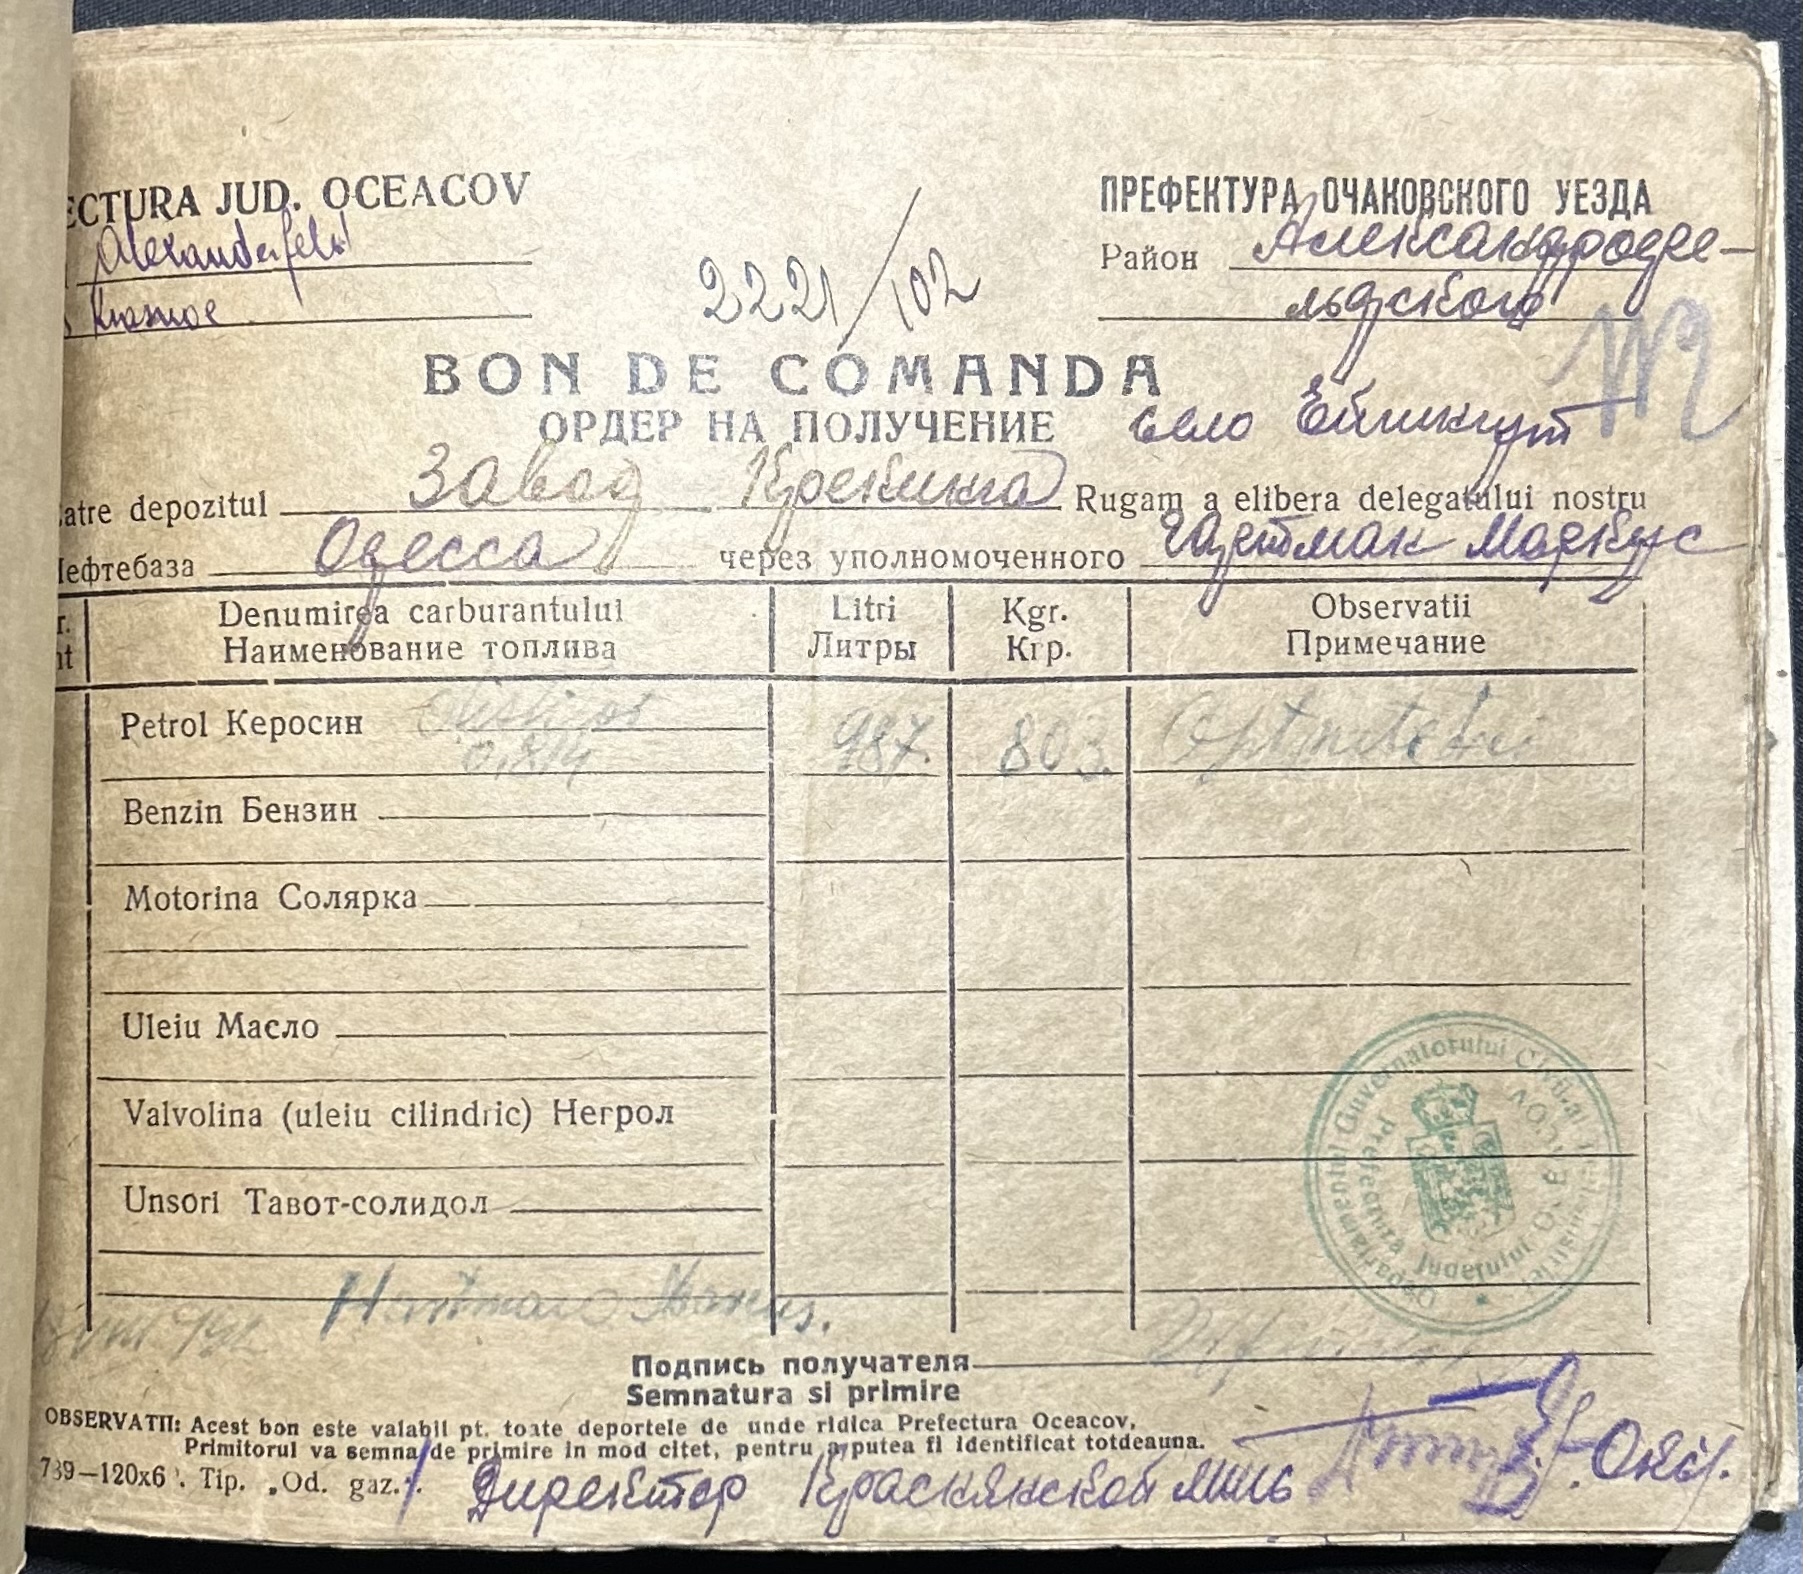 ECTURA JUD. OCEACOV
Alexanderfeld
Krasnoe
2221/102
ПРЕФЕКТУРА ОЧАКОВСКОГО УЕЗДА
Район Александрофе-
льдского
BON DE COMANDA
ОРДЕР НА ПОЛУЧЕНИЕ село
atre depozitul Завод Крекинга Rugam a elibera delegatului nostru
Нефтебаза Одесса через уполномоченного Гартман Маркус
Denumirea carburantului Litri Kgr. Observatii
Наименование топлива Литры Кгр. Примечание
Petrol Керосин 987. 803. Opt sute trei
0,814
Benzin Бензин
Motorina Солярка
Uleiu Масло
Valvolina (uleiu cilindric) Негрол
Unsori Тавот-солидол
Departamentul Guvernatorului Civil al Transnistriei
Prefectura Judetului Oceacov
Hartman Marcus.
Подпись получателя
Semnatura si primire
OBSERVATII: Acest bon este valabil pt. toate deportele de unde ridica Prefectura Oceacov.
Primitorul va semna de primire in mod citet, pentru a putea fi identificat totdeauna.
739—120x6 . Tip. „Od. gaz."
Директор